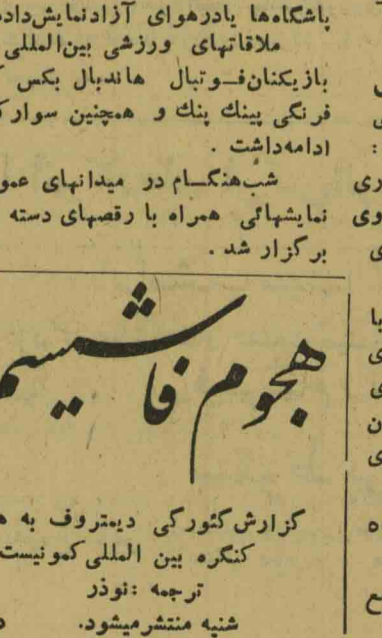 باشگاه‌ها یادرهوای آزادنمایش‌داده
ملاقاتهای ورزشی بین‌المللی
بازیکنان‌فـوتبال هاندبال بکس
فرنگی پینك پنك و همچنین سوارک
ادامه‌داشت .
شب‌هنگـام در میدانهای عمو
نمایشهائی همراه با رقصهای دسته
برگزار شد .
هجوم فاشیسم
گزارش‌گئورگی دیمتروف به ه
کنگره بین المللی‌کمونیست
ترجمه :نوذر
شنبه منتشرمیشود.
ری
وی
ی
یا
ی
ی
ن
ی
ه
ع